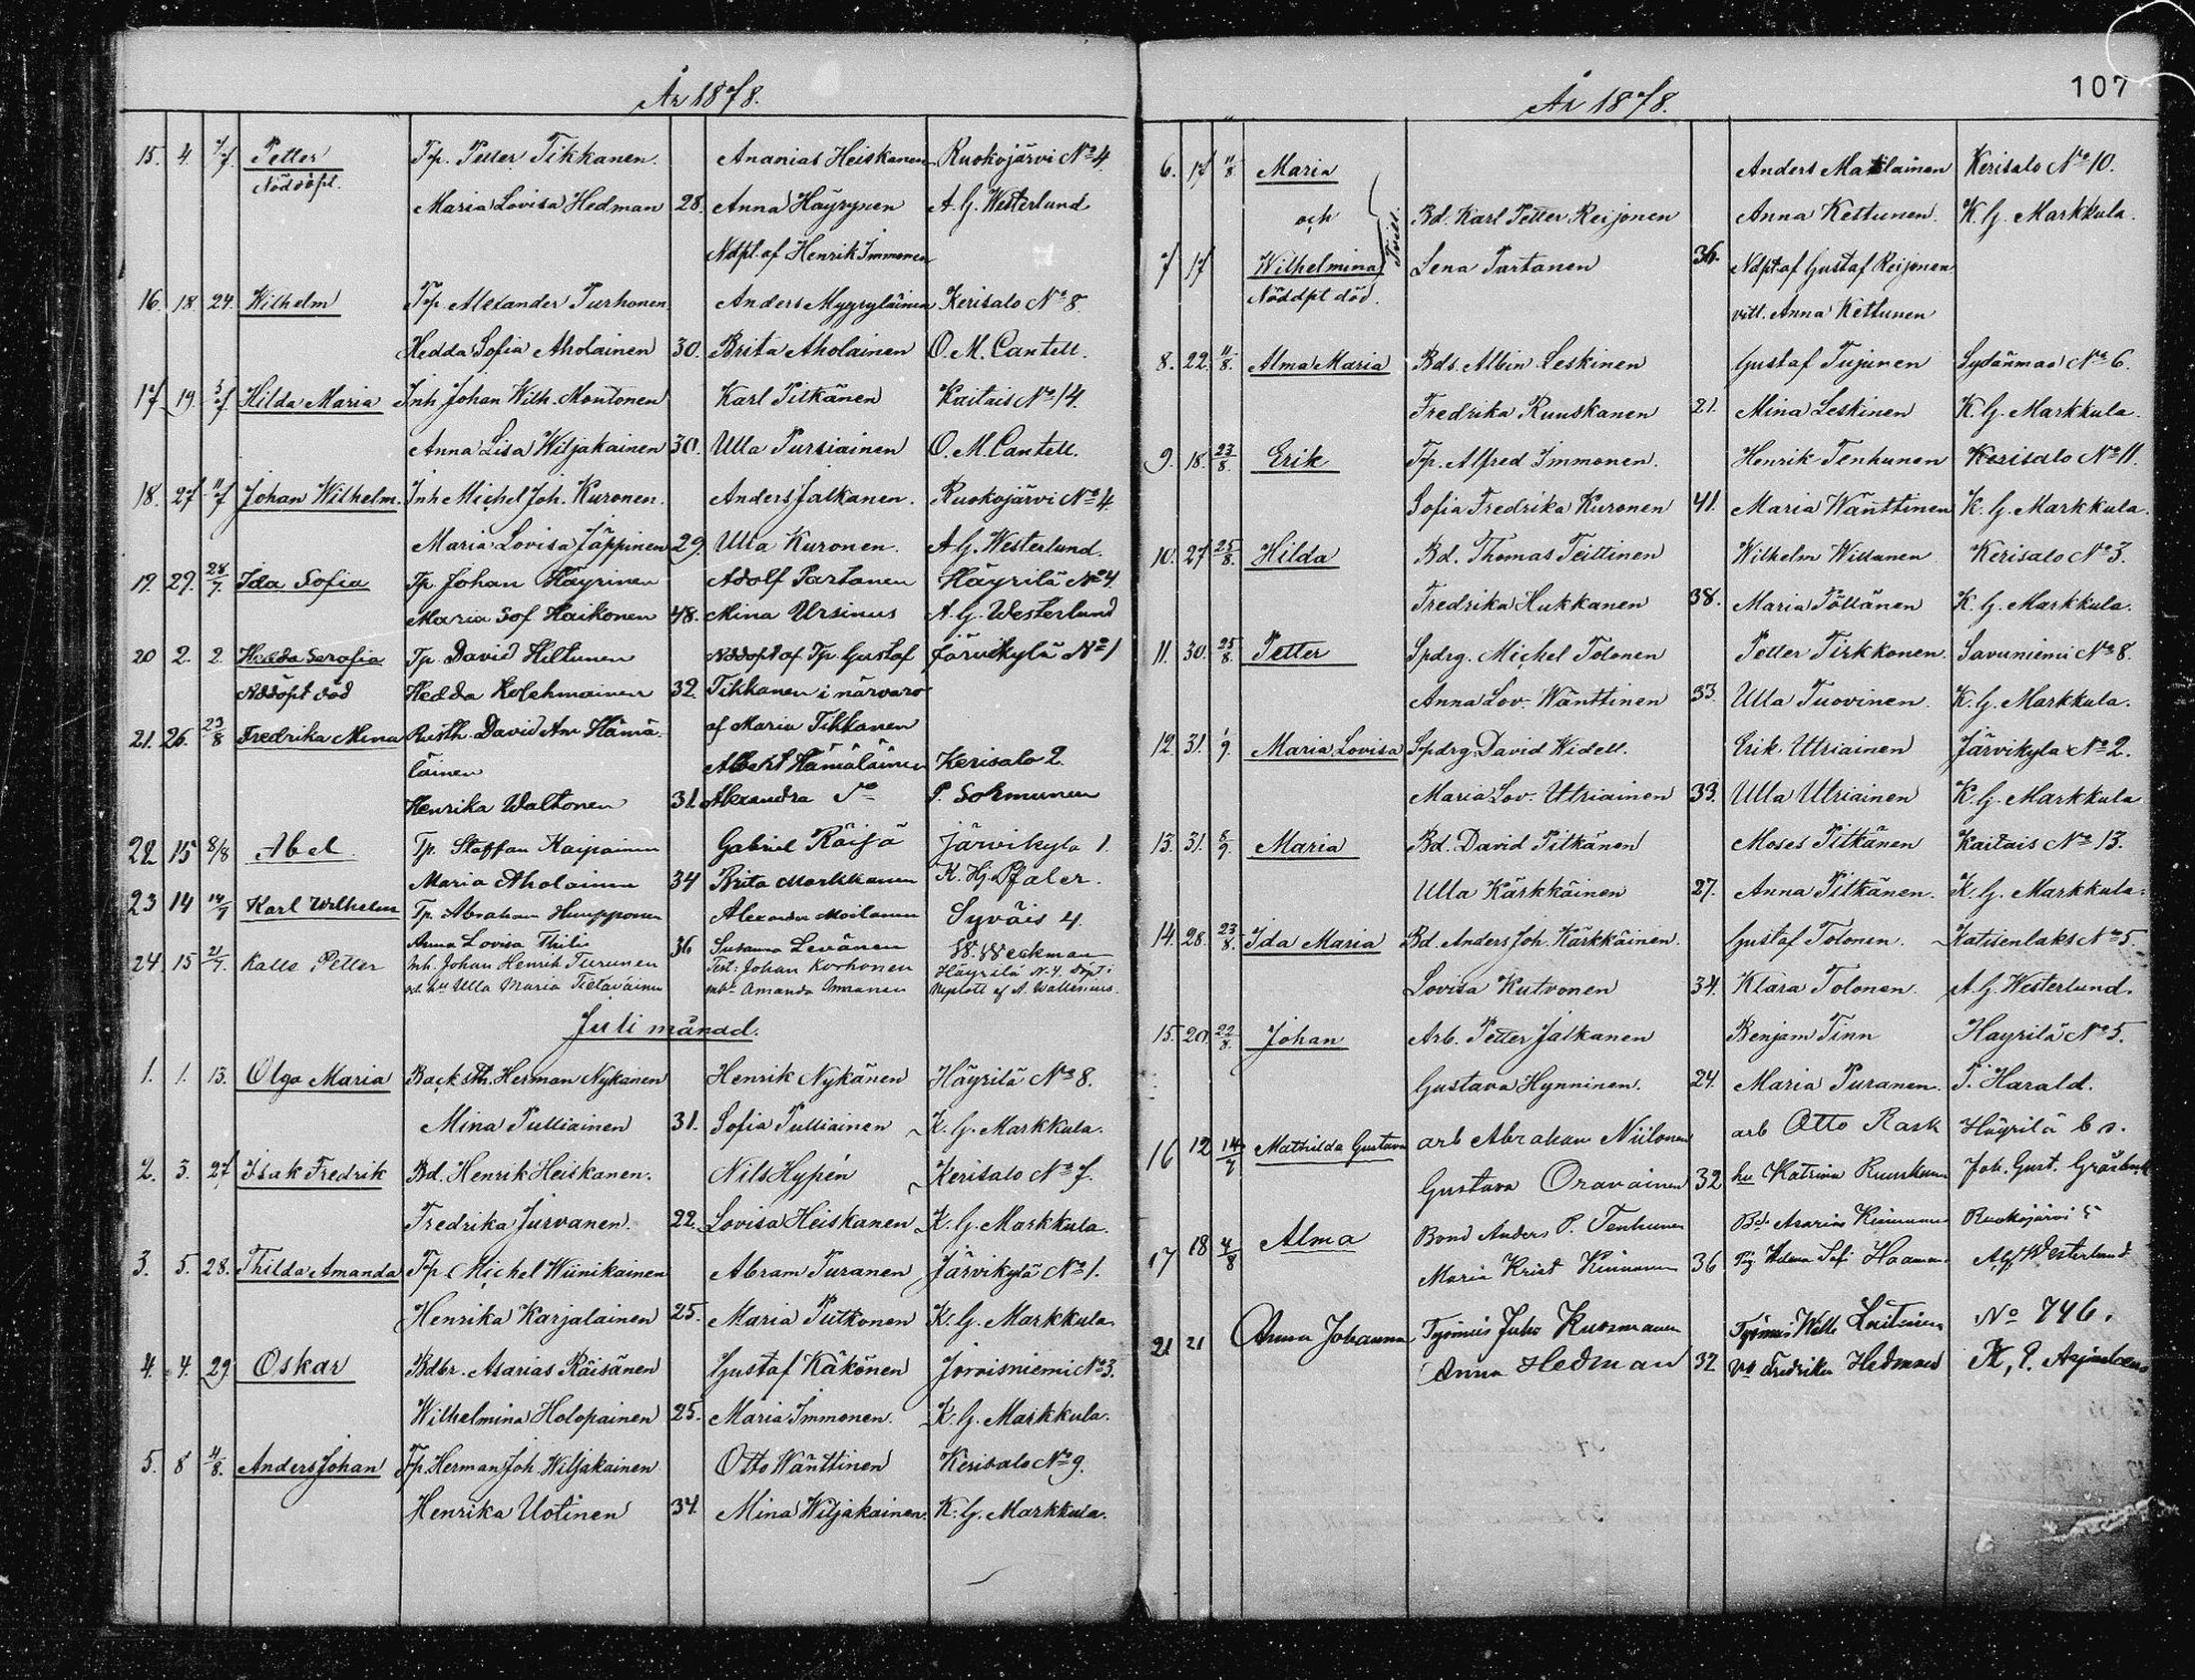 År 1878.
15. 4. 7/7. Petter Tp. Petter Tikkanen. Ananias Heiskanen Ruokojärvi No 4.
Nöddöpt.
Maria Lovisa Hedman 28. Anna Häyrynen A. G. Westerlund
Ndpt. af Henrik Immonen
16. 18. 24. Wilhelm Tp. Alexander Turhonen Anders Myyryläinen Kerisalo No 8.
Hedda Sofia Aholainen 30. Brita Aholainen O. M. Cantell.
17 19. 5/7. Hilda Maria Inh. Johan Wilh. Montonen Karl Pitkänen Kaitais No 14.
Anna Lisa Wiljakainen 30. Ulla Pursiainen O. M. Cantell.
18. 27. 11/7 Johan Wilhelm. Inh. Michel Joh. Kuronen. Anders Jalkanen. Ruokojärvi No 4.
Maria Lovisa Jäppinen 29. Ulla Kuronen. A. G. Westerlund.
19. 29. 28/7. Ida Sofia Tp Johan Häyrinen Adolf Partanen Häyrilä No 4.
Maria Sof Haikonen 48. Mina Ursinus A. G. Westerlund
20 2. 2. Hedda Serafia Tp David Hiltunen Nöddöpt af Tp. Gustaf Järvikylä No 1
Nöddöpt död Hedda Kolehmainen 32. Tikkanen i närvaro
af Maria Tikkanen
21. 26. 23/8 Fredrika Mina Rusth. David Am Hämä-
läinen Albert Hämäläinen Kerisalo 2.
Henrika Waltonen 31. Alexandra P. Sormunen
22 15 8/8 Abel Tp. Staffan Kaipainen Gabriel Räisä Järvikylä 1.
Maria Aholainen 34 Brita Markkanen K. Hj. Pfaler.
23 14 14/7 Karl Wilhelm Tp. Abraham Humpponen Alexander Moilanen Syväis 4.
Anna Lovisa Thile 36 Susanna Levänen W. Weckman
24 15 21/7. Kalle Petter Inh. Johan Henrik Turunen Test: Johan Korhonen Häyrilä N. 4. Döpt i
Ulla Maria Tietäväinen Amanda Immonen Neplott af A. Wallenius.
Juli månad.
1. 1. 13. Olga Maria Backsth. Herman Nykänen Henrik Nykänen Häyrilä No 8.
Mina Pulliainen 31. Sofia Pulliainen K. G. Markkula.
2. 3. 27 Isak Fredrik Bd. Henrik Heiskanen. Nils Hypén Kerisalo No 7.
Fredrika Jurvanen. 22. Lovisa Heiskanen K. G. Markkula.
3. 5. 28. Thilda Amanda Tp. Michel Wiinikainen Abram Puranen Järvikylä No 1.
Henrika Karjalainen 25. Maria Putkonen K. G. Markkula.
4. 4. 29. Oskar Bdbr. Asarias Räisänen Gustaf Käkönen Joroisniemi No 3.
Wilhelmina Holopainen 25. Maria Immonen. K. G. Markkula.
5. 8 4/8. Anders Johan Tp. Herman Joh. Wiljakainen Otto Wänttinen Kerisalo No 9.
Henrika Uotinen 34. Mina Wiljakainen. K. G. Markkula.
År 1878.
107
6. 17 11/8. Maria Anders Matilainen Kerisalo No 10.
och Tvill. Bd. Karl Petter Reijonen Anna Kettunen. K. G. Markkula.
7 17 Wilhelmina Lena Partanen 36. Ndpt. af Gustaf Reijonen
Nöddpt död. vitt. Anna Kettunen
8. 22. 11/8. Alma Maria Bds. Albin Leskinen Gustaf Tujunen Sydänmaa No 6.
Fredrika Ruuskanen 21. Mina Leskinen K. G. Markkula.
9. 18. 23/8. Erik Tp. Alfred Immonen. Henrik Tenhunen Kerisalo No 11.
Sofia Fredrika Kuronen 41. Maria Wänttinen K. G. Markkula.
10. 27 25/8. Hilda Bd. Thomas Teittinen Wilhelm Willanen Kerisalo No 3.
Fredrika Hukkanen 38. Maria Pöllänen K. G. Markkula.
11. 30. 25/8. Petter Spdrg. Michel Tolonen Petter Pirkkonen. Savuniemi No 8.
Anna Lov. Wänttinen 33. Ulla Tuovinen. K. G. Markkula.
12. 31. 1/9. Maria Lovisa Spdrg David Widell. Erik Utriainen Järvikylä No 2.
Maria Lov. Utriainen 33. Ulla Utriainen K. G. Markkula
13. 31. 8/9. Maria Bd. David Pitkänen Moses Pitkänen Kaitais No 13.
Ulla Kärkkäinen 27. Anna Pitkänen. K. G. Markkula.
14. 28. 23/8. Ida Maria Bd. Anders Joh. Kärkkäinen. Gustaf Tolonen. Katisenlaks No 5.
Lovisa Kutvonen 34. Klara Tolonen. A. G. Westerlund.
15. 20. 22/8. Johan Arb. Petter Jalkanen Benjam Tinn Häyrilä No 5.
Gustava Hynninen. 24. Maria Puranen. T. Harald.
16 12 14/7 Mathilda Gustava arb Abraham Niilonen arb Otto Rask Häyrilä 6
Gustava Oravainen 32 hu Katrina Ruuskanen Joh. Gust.
17 18 4/8 Alma Bond Anders P. Tenhunen Bd. Asarias Kinnunen Ruokojärvi 5
Maria Krist Kinnunen 36 Sofi A. G. Westerland
21 21 Anna Johanna Työmies Juho Kuosmanen Työmies Wille No 746.
Anna Hedman 32 Fredrika Hedman